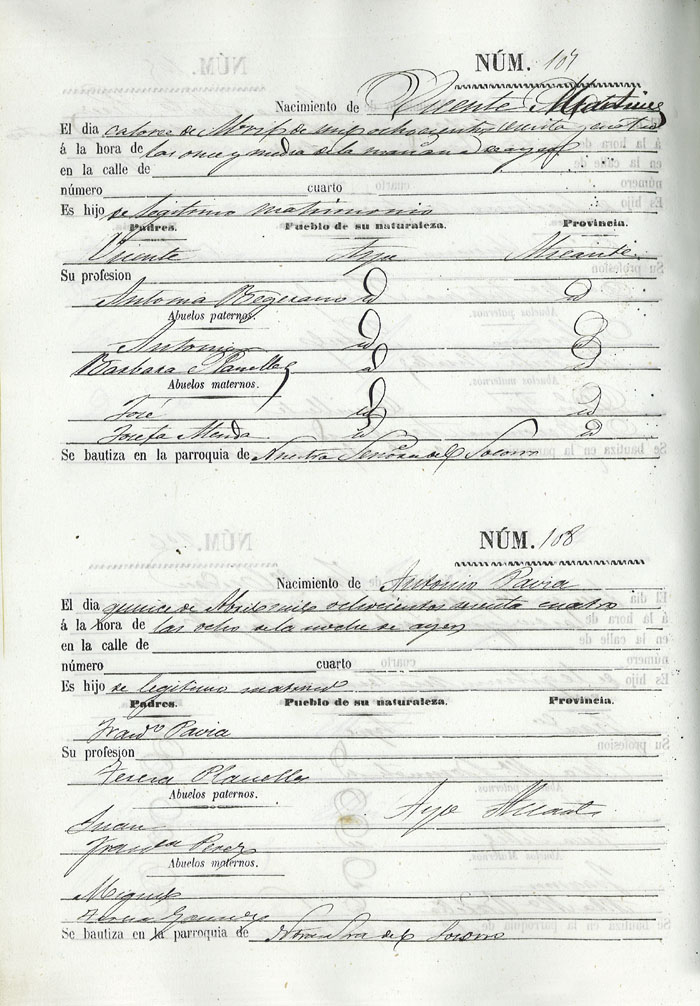 NÚM. 107
Nacimiento de Vicente Martinez
El dia catorce de Abril de mil ochocientos sesenta y cuatro
á la hora de las once y media de la mañana de ayer
en la calle de
número cuarto
Es hijo de legitimo matrimonio
Padres. Pueblo de su naturaleza. Provincia.
Vicente Aspe Alicante
Su profesion
Antonia Begerano id id
Abuelos paternos.
Antonio id id
Barbara Planelles id id
Abuelos maternos.
José id id
Josefa id id
Se bautiza en la parroquia de Nuestra Señora del Socorro
NÚM. 108
Nacimiento de Antonio Pavia
El dia quince de Abril mil ochocientos sesenta cuatro
á la hora de las ocho de la noche de ayer
en la calle de
número cuarto
Es hijo de legitimo
Padres. Pueblo de su naturaleza. Provincia.
Franco Pavia
Su profesion
Teresa Planelles
Abuelos paternos.
Juan Aspe Alicante
Franca Perez
Abuelos maternos.
Miguel
Se bautiza en la parroquia de Ntra Sra del Socorro